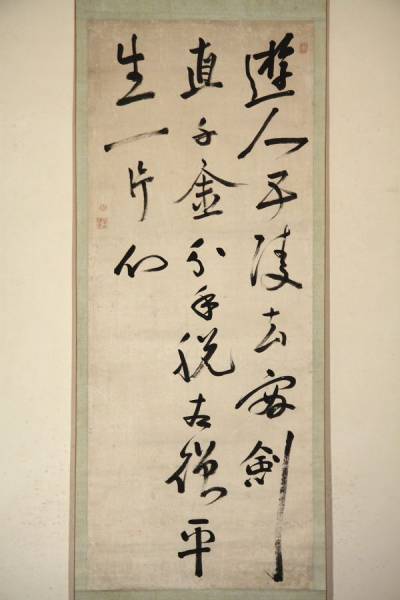 遊人五陵去寶劍
直千金分手脱相贈平
生一片心